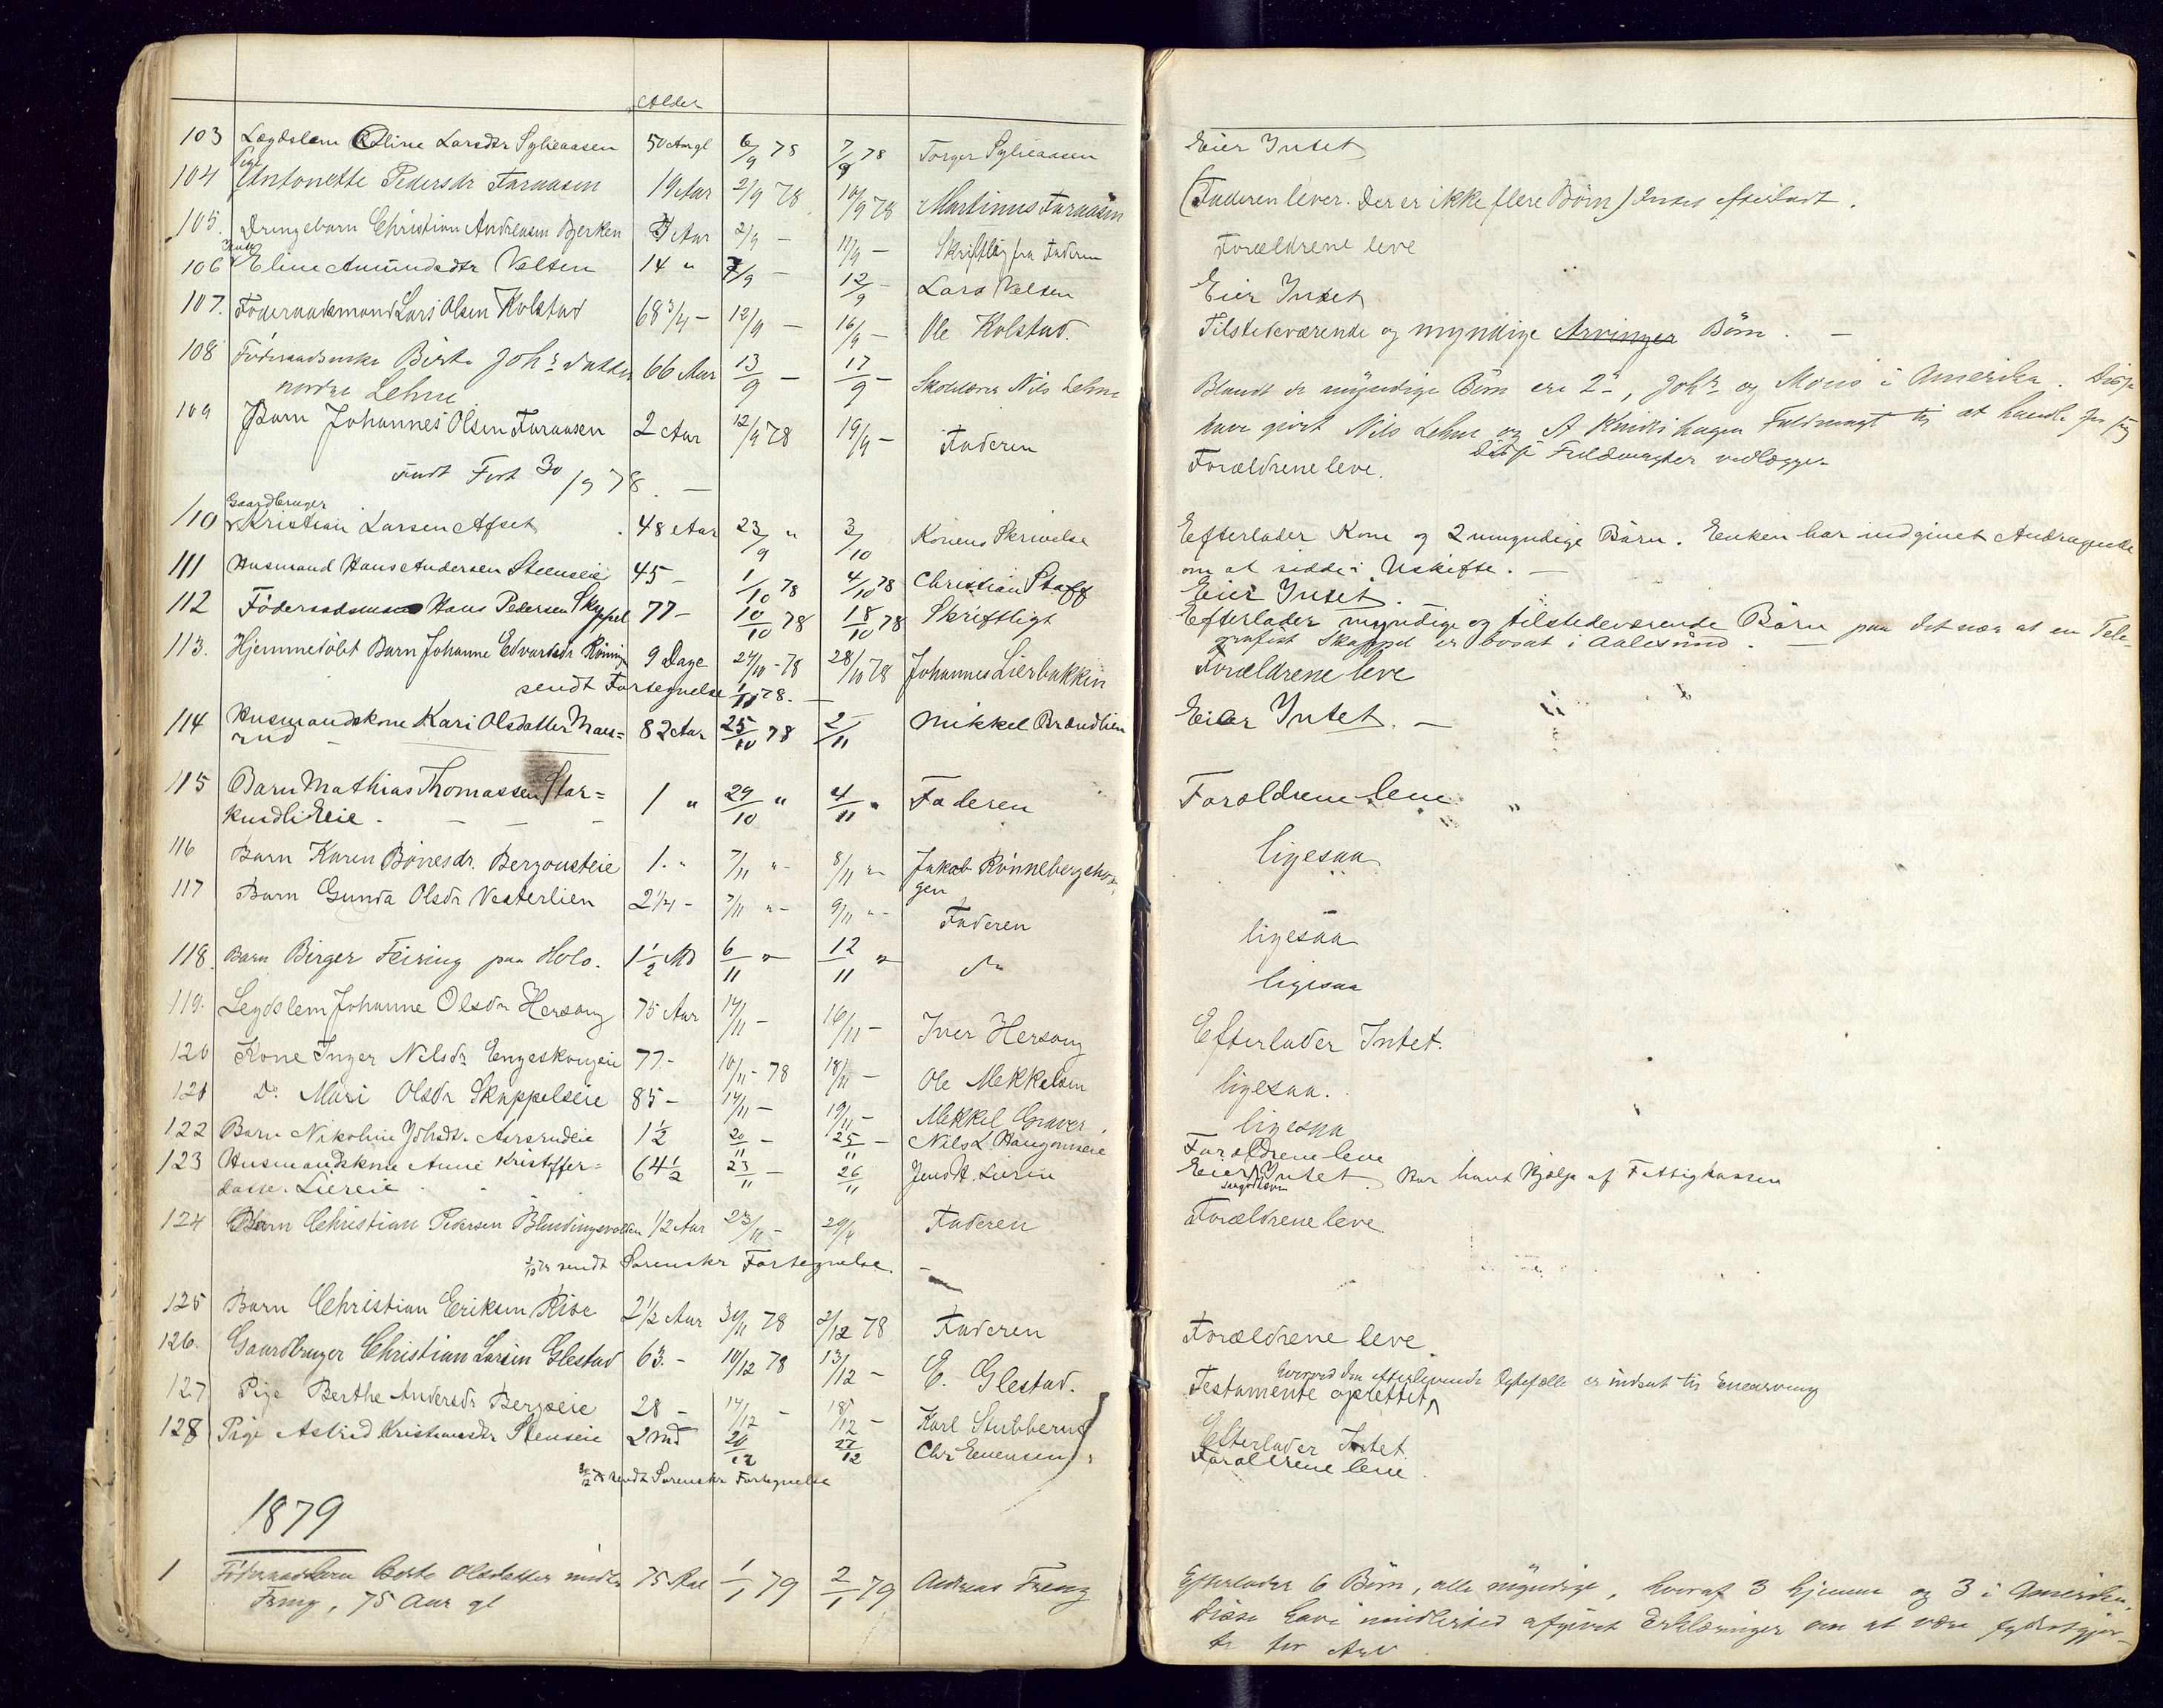 Alder
103 Lægdslem Eline Larsdtr Sylieaasen 50 Aar gl 6/9 78 7/9 78 Torger Sylieaasen Eier Intet
Pige
104 Antonette Pedersdr Faraasen 19 Aar 2/9 78 10/9 78 Martinus Faraasen (Faderen lever. Der er ikke flere Børn) Intet efterladt.
105. Drengebarn Christian Andreasen Bjerken Aar 2/9 — 11/9 — Skriftlig fra Faderen Forældrene leve
106 Eline Amundsdtr Velten 14 " 7/9 — 12/9 — Lars Velten Eier Intet
107. Føderaadsmand Lars Olsen Kolstad 68 3/4 — 12/9 — 16/9 — Ole Kolstad. Tilstedeværende og myndige Arvinger Børn. —
108 Føderaadsenke Birte Johs datter 66 Aar 13/9 — 17/9 — Skolelærer Nils Lehne Blandt de myndige Børn ere 2, Johs og Mons i Amerika. Disse
nordre Lehne
have givet Nils Lehne og A Fuldmagt til at handle for sig
Disse Fuldmagter vedlægges
109 Barn Johannes Olsen Faraasen 2 Aar 12/9 78 19/9 — Faderen Forældrene leve.
sendt Fort 30/9 78. —
Gaardbruger
110 Kristian Larsen Afset 48 Aar 23/9 " 3/10 Konens Skrivelse Efterlader Kone og 2 umyndige Børn. Enken har indgivet Andragende
om at sidde i Uskifte. —
111 Husmand Hans Andersen Steenseie 45 — 1/10 78 4/10 78 Christian Staff Eier Intet.
112 Føderaadsmand Hans Pedersen Skappel 77 — 10/10 78 18/10 78 Skriftligt Efterlader myndige og tilstedeværende Børn paa det nær at en Tele-
grafist Skappel er bosat i Aalesund. —
113. Hjemmedøbt Barn Johanne Edvardsdr 9 Dage 24/10 - 78 28/10 78 Johannes Lierbakken Forældrene leve
sendt Fortegnelse 1/11 78. —
114 Husmandskone Kari Olsdatter Maes= 82 Aar 25/10 78 2/11 Mikkel Brændlien Eier Intet. —
rud —
115 Barn Mathias Thomassen Stor= 1 " 29/10 " 4/11 " Faderen Forældrene leve
kindli Eie.
116 Barn Karen Børresdr. Bergousteie 1. " 7/11 " — 8/11 " — Jakob Rønnebergsha-
gen ligesaa
117 Barn Gunda Olsdr Vesterlien 2 1/4 — 7/11 " — 9/11 " — Faderen ligesaa
118. Barn Birger Feiring paa Holo. 1 1/2 Md 6/11 " 12/11 " do ligesaa
119. Legdslem Johanne Olsdr Hersoug 75 Aar 14/11 — 16/11 — Iver Hersoug Efterlader Intet.
120 Kone Inger Nilsdr Engeskougeie 77 — 10/11 - 78 18/11 — Ole Mekkelsen ligesaa.
121 Do Mari Olsdr Skappelseie 85 — 14/11 — 19/11 — Mekkel Graver ligesaa
122 Barn Nikoline Johsdtr. Aarsrudeie 1 1/2 20/11 — 25/11 — Nils L. Haugomseie Forældrene leve
123 Husmandskone Anne Kristoffer= 64 1/2 23/11 — 26/11 Jens A. Liereie Eier Intet. Har havt Hjælp af Fattigkassen
datter. Liereie
124 Barn Christian Pedersen Blindingsvolden 1/2 Aar 23/11 — 29/11 Faderen Forældrene leve
sendt Sorenskr Fortegnelse. —
125 Barn Christian Eriksen Rise 2 1/2 Aar 30/11 78 2/12 78 Faderen Forældrene leve.
126. Gaardbruger Christian Larsen Glestad 63. — 10/12 78 13/12 — E. Glestad. Testamente oprettet
hvorved den efterlevende Ægtefælle er indsat til Enearving
127 Pige Berthe Andersdr Bergseie 28 — 14/12 — 18/12 — Karl Stubberud Efterlader Intet
128 Pige Astrid Kristiansdtr Stenseie 2 md 20/12 27/12 Chr Evensen Forældrene leve.
sendt Sorenskr Fortegnelse
1879
1 Føderaadskone Berte Olsdatter nedre 75 Aar 1/1 79 2/1 79 Andreas Freng Efterlader 6 Børn, alle myndige, hvoraf 3 hjemme og 3 i Amerika.
Freng, 75 Aar gl
Disse have imidlertid afgivet Erklæringer om at være fyldestgjor-
te for Arv